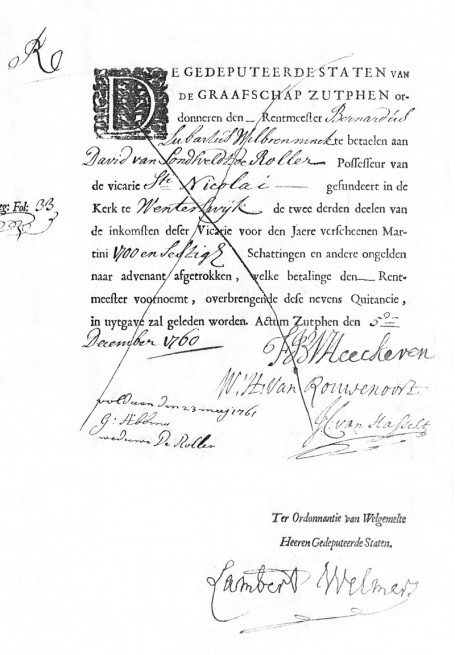 R
DE GEDEPUTEERDE STATEN VAN
DE GRAAFSCHAP ZUTPHEN or-
donneren den Rentmeester Bernardus
Lubartus Wilbrenninck te betaelen aan
David van Londveldt de Roller Possesseur van
de vicarie Ste Nicolai gefundeert in de
Kerk te Wenterswijk de twee derden deelen van
de inkomsten deser Vicarie voor den Jaere verscheenen Mar-
tini 1700 en Sestigh Schattingen en andere ongelden
naar advenant afgetrokken, welke betalinge den Rent-
meester voornoemt, overbrengende dese nevens Quitancie,
in uytgave zal geleden worden. Actum Zutphen den 5de
December 1760
eg: Fol: 33
W: H: Van Rouwenoort
voldaen den 23 meij 1761
G: Abbinc
weduwe De Roller
van Hasselt
Ter Ordonnantie van Welgemelte
Heeren Gedeputeerde Staten.
Lambert Welmers